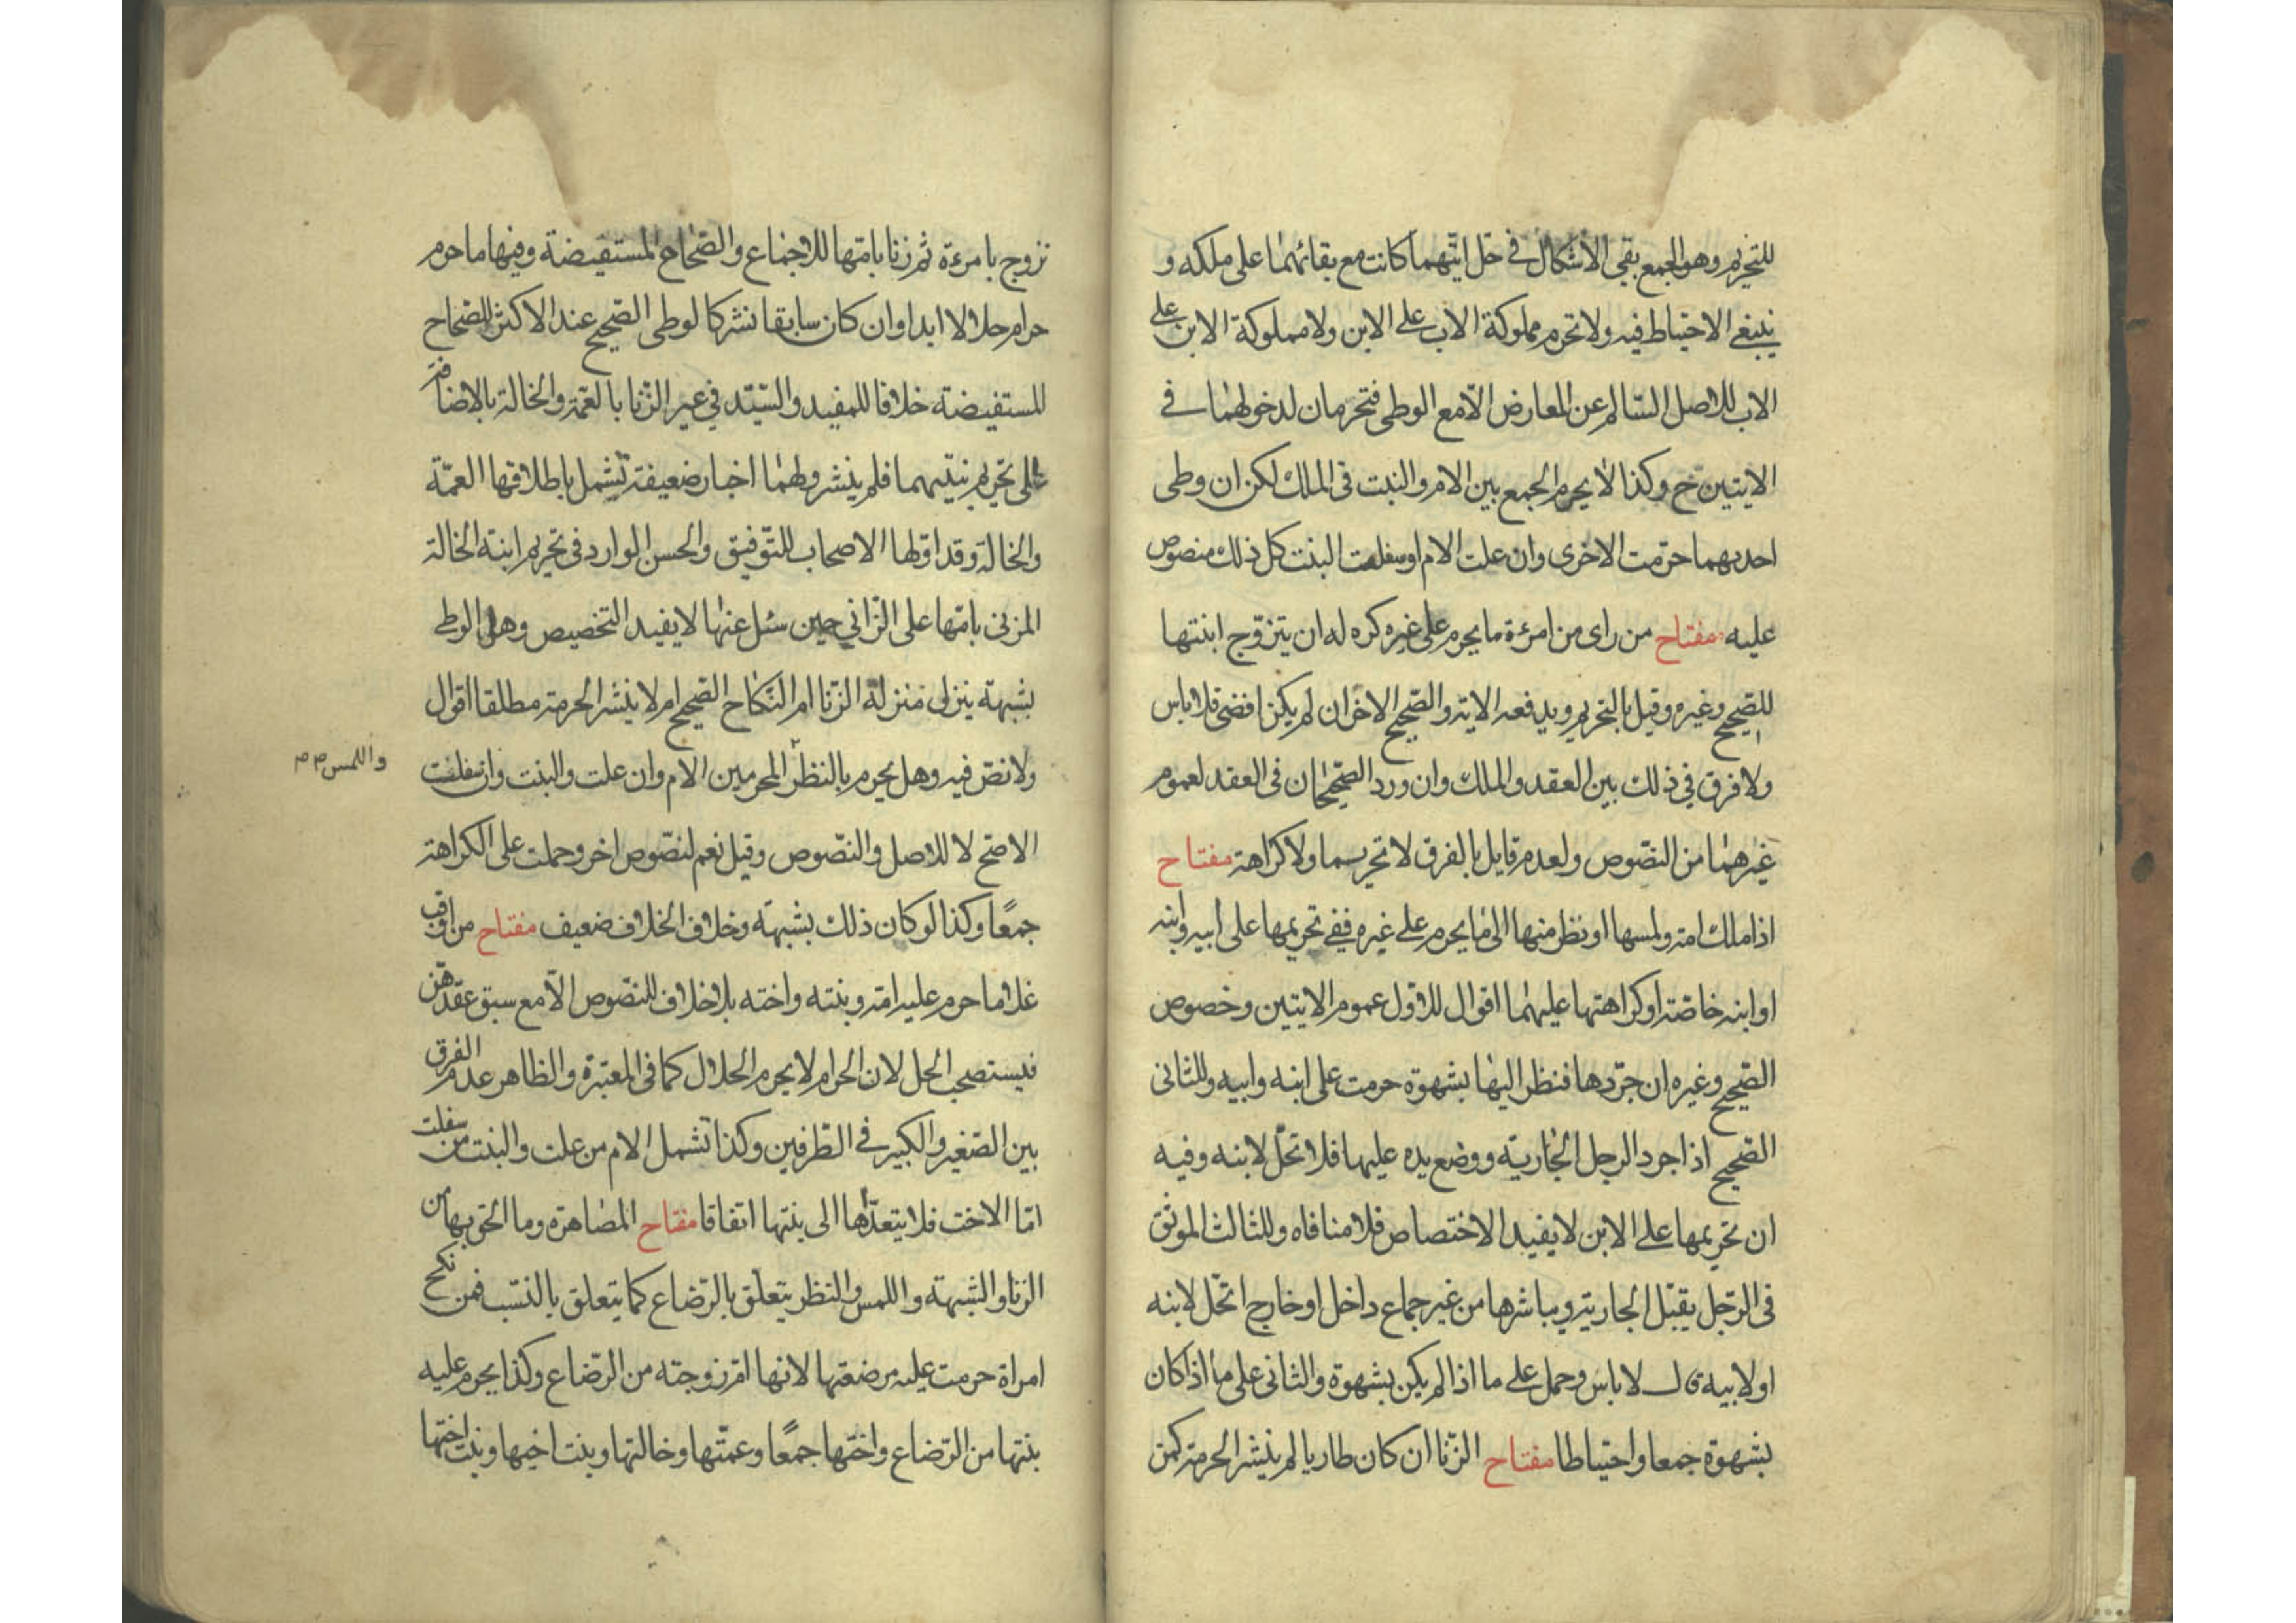 للتحريم وهو الجمع بقي الاشكال في حل ايتهما كانت مع بقائهما على ملكه و
ينبغي الاحتياط فيه ولا تحرم مملوكة الاب على الابن ولا مملوكة الابن على
الاب للاصل السالم عن المعارض الا مع الوطي فتحرمان لدخولهما في
الايتين ح وكذا لا يحرم الجمع بين الام والبنت في الملك لكن ان وطي
احديهما حرمت الاخرى وان علت الام او سفلت البنت كل ذلك منصوص
عليه مفتاح من راى من امرءة ما يحرم على غيره كره له ان يتزوج ابنتها
للصحيح وغيره وقيل بالتحريم ويدفعه الاية والصحيح الاخر ان لم يكن افضى فلا باس
ولا فرق في ذلك بين العقد والملك وان ورد الصحيحان في العقد لعموم
غيرهما من النصوص ولعدم قايل بالفرق لا تحريما ولا كراهة مفتاح
اذا ملك امة ولمسها او نظر منها الى ما يحرم على غيره ففي تحريمها على ابيه وابنه
او ابنه خاصة او كراهتها عليهما اقوال للاول عموم الايتين وخصوص
الصحيح وغيره ان جردها فنظر اليها بشهوة حرمت على ابنه وابيه وللثاني
الصحيح اذا جرد الرجل الجارية ووضع يده عليها فلا تحل لابنه وفيه
ان تحريمها على الابن لا يفيد الاختصاص فلا منافاه وللثالث الموثق
في الرجل يقبل الجارية ويباشرها من غير جماع داخل او خارج اتحل لابنه
او لابيه قال لا باس وحمل على ما اذا لم يكن بشهوة والثاني على ما اذا كان
بشهوة جمعا واحتياطا مفتاح الزنا ان كان طاريا لم ينشر الحرمة كمن
تزوج بامرءة ثم زنا بامها للاجماع والصحاح المستفيضة وفيها ما حرم
حرام حلالا ابدا وان كان سابقا نشر كالوطي الصحيح عند الاكثر للصحاح
المستفيضة خلافا للمفيد والسيد في غير الزنا بالعمة والخالة بالاضافة
على تحريم بنتيهما فلم ينشر ولهما اخبار ضعيفة تشمل باطلاقها العمة
والخالة وقد اولها الاصحاب للتوفيق والحسن الوارد في تحريم ابنة الخالة
المزنى بامها على الزاني حين سئل عنها لا يفيد التخصيص وهل الوطي
بشبهة ينزل منزلة الزنا ام النكاح الصحيح ام لا ينشر الحرمة مطلقا اقوال
ولا نص فيه وهل يحرم بالنظر المحرمين الام وان علت والبنت وان سفلت
واللمس
الاصح لا للاصل والنصوص وقيل نعم لنصوص اخر وحملت على الكراهة
جمعًا وكذا لو كان ذلك بشبهة وخلاف الخلاف ضعيف مفتاح من اوقب
غلاما حرم عليه امه وبنته واخته بلا خلاف للنصوص الا مع سبق عقدهن
فيستصحب الحل لان الحرام لا يحرم الحلال كما في المعتبرة والظاهر عدم الفرق
بين الصغير والكبير في الطرفين وكذا تشمل الام من علت والبنت من سفلت
اما الاخت فلا يتعداها الى بنتها اتفاقا مفتاح المصاهرة وما الحق بها من
الزنا والشبهة واللمس والنظر يتعلق بالرضاع كما يتعلق بالنسب فمن نكح
امراة حرمت عليه مرضعتها لانها ام زوجته من الرضاع وكذا يحرم عليه
بنتها من الرضاع واختها جمعًا وعمتها وخالتها وبنت اخيها وبنت اختها